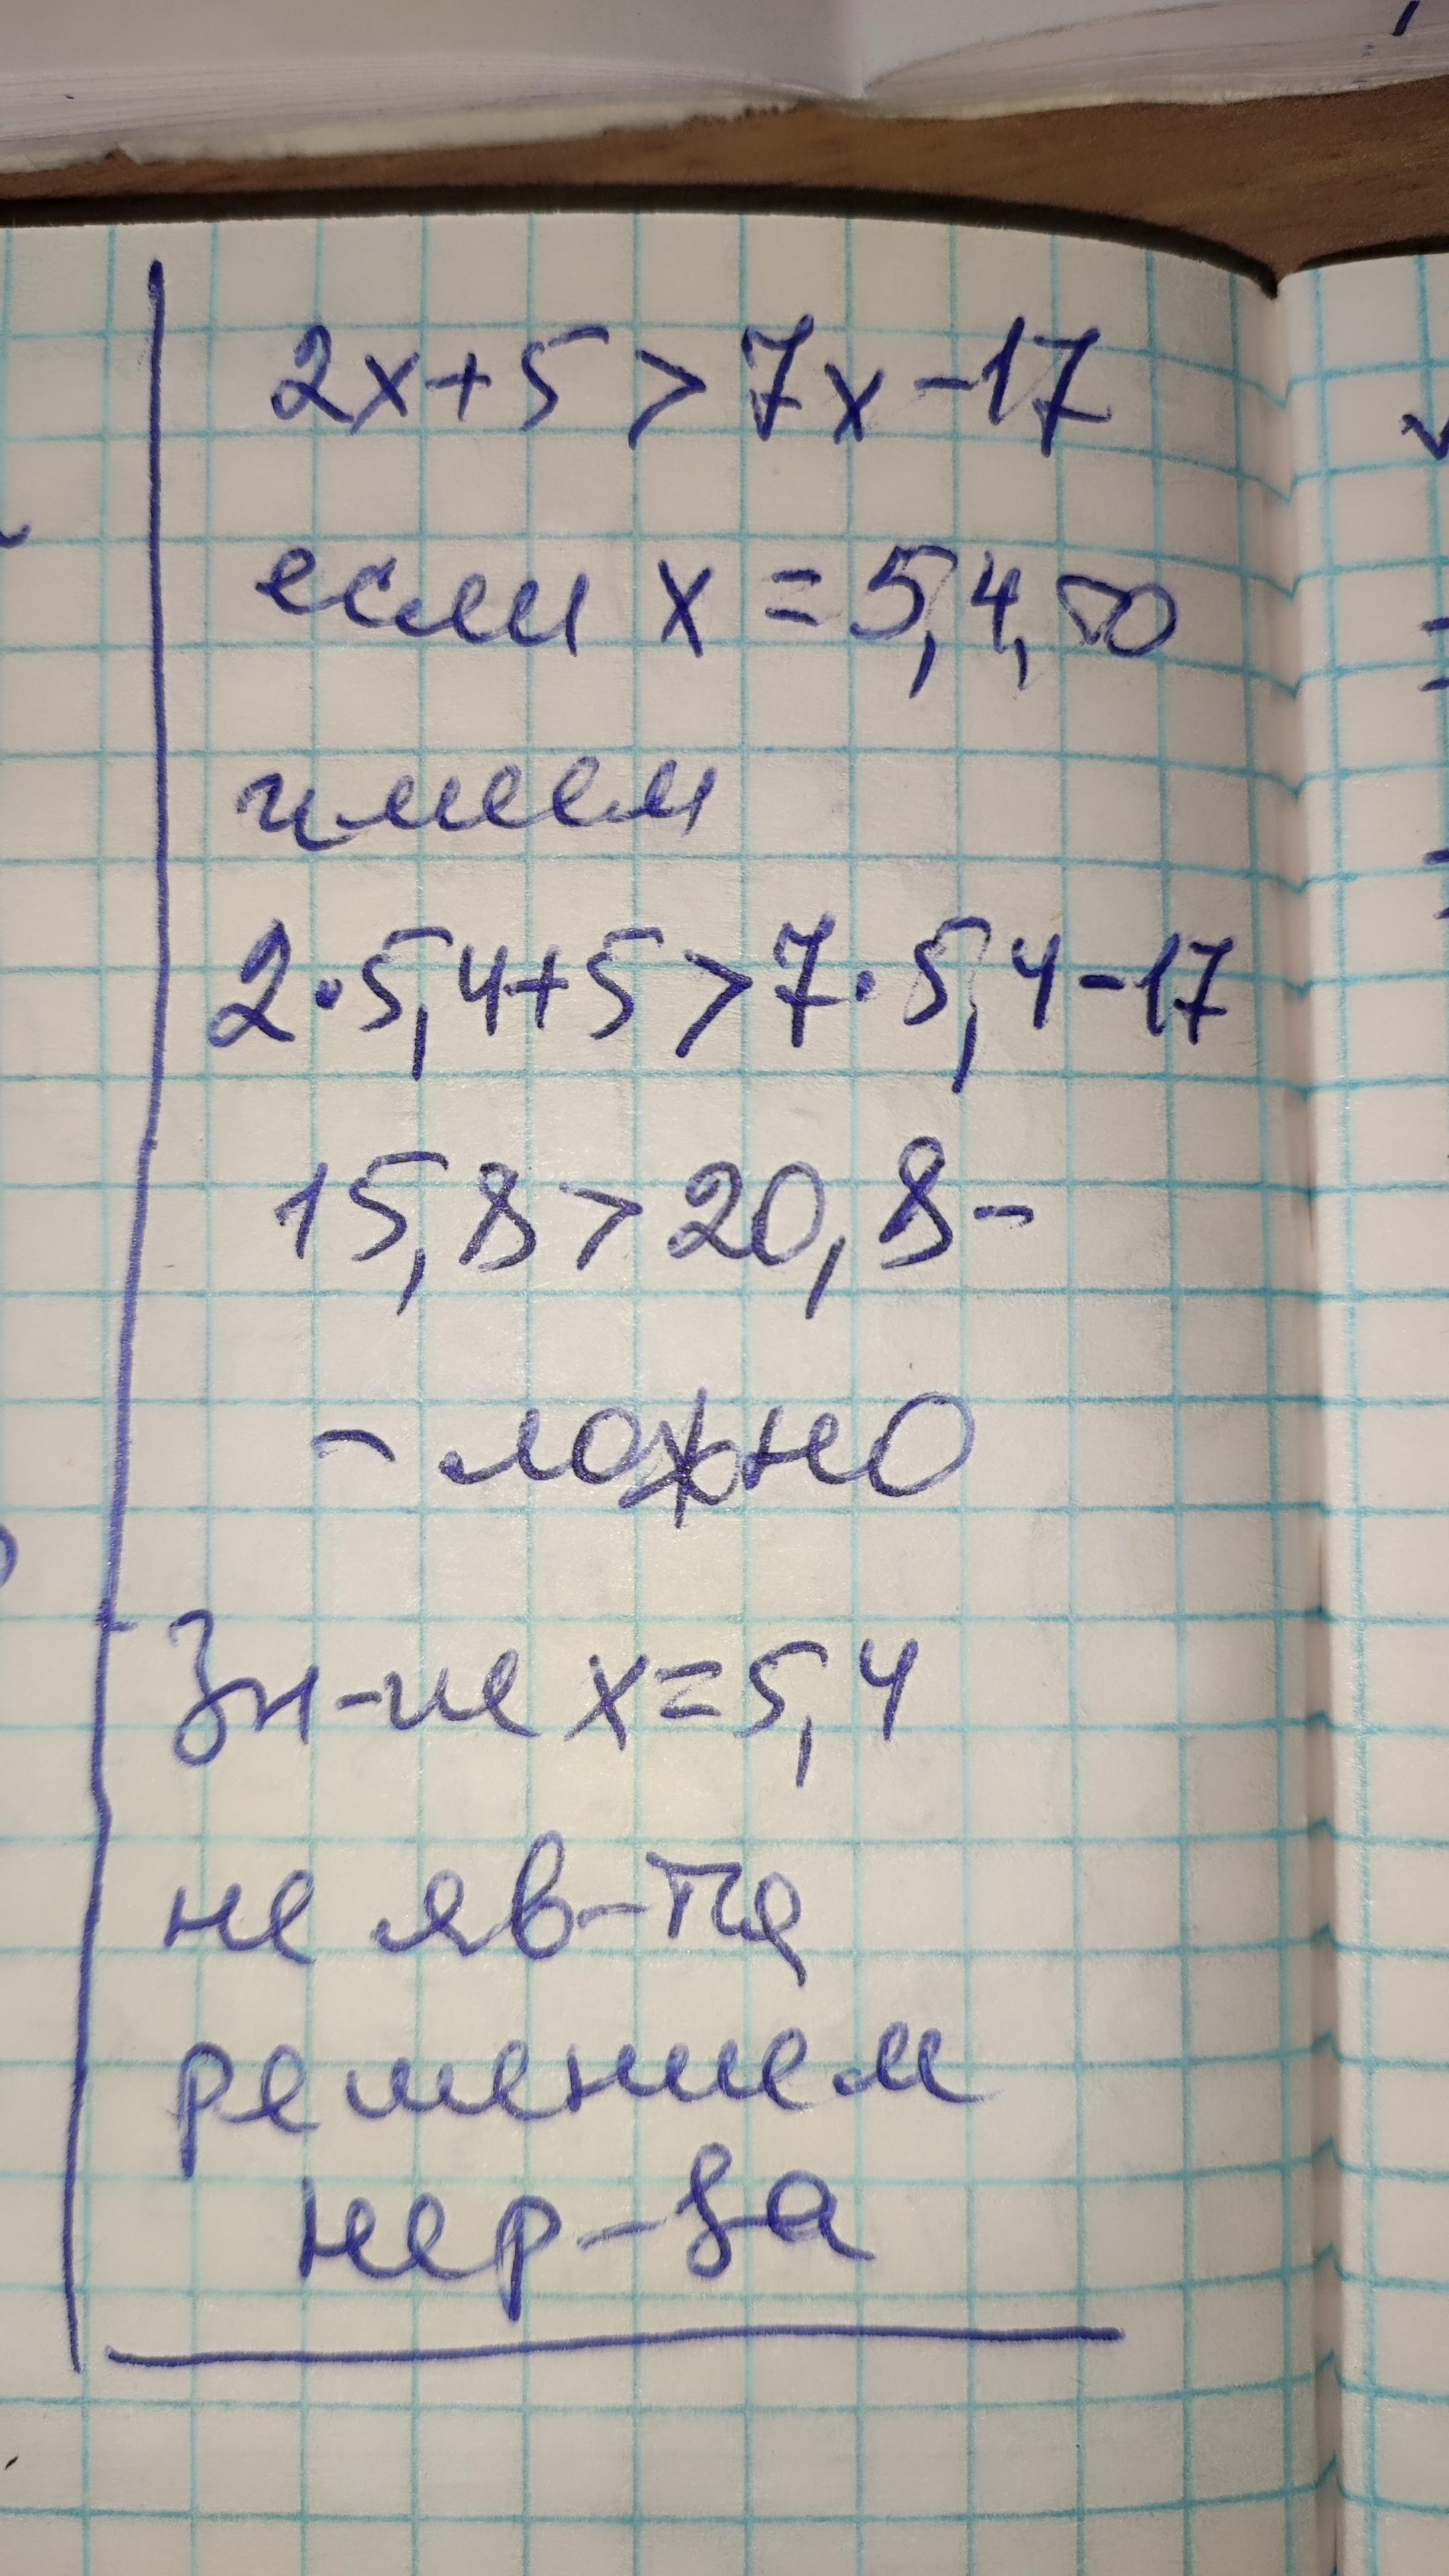 2x+5>7x-17
если x=5,4, то
имеем
2·5,4+5>7·5,4-17
15,8>20,8-
-ложно
Зн-ие x=5,4
не яв-тся
решением
нер-ва